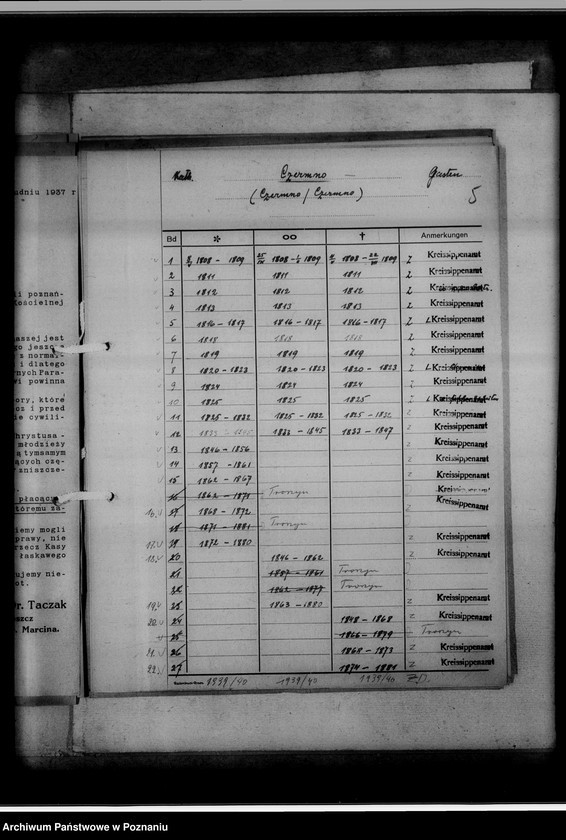 odniu 1937 r
li poznań-
Kościelnej
aszej jest
i dlatego
nych Para-
wi powinna
ory, które
cz i przed
ie cywili-
hrystusa -
młodzieży
ą tymsamym
ących czę-
zniszcze-
płacącą
tóremu za-
iemy mogli
prawy, nie
rzecz Kasy
łaskawego
ujemy nie-
ot.
r. Taczak
szcz
. Marcina.
Kath. Czermno Gasten
(Czermno / Czermno) 5
Bd * ∞ † Anmerkungen
1 1808 - 1809 1808 - 1809 1808 - 1809 Z Kreissippenamt
2 1811 1811 1811 Z Kreissippenamt
3 1812 1812 1812 Z
4 1813 1813 1813 Z Kreissippenamt
5 1816 - 1817 1816 - 1817 1816 - 1817 Z Kreissippenamt
6 1818 1818 1818 Z Kreissippenamt
7 1819 1819 1819 Z Kreissippenamt
8 1820 - 1823 1820 - 1823 1820 - 1823 Z
9 1824 1824 1824 Z Kreissippenamt
10 1825 1825 1825 Z
11 1825 - 1832 1825 - 1832 1825 - 1832 Z Kreissippenamt
12 1833 - 1845 1833 - 1845 1833 - 1847 Z Kreissippenamt
13 1846 - 1856 Z Kreissippenamt
14 1857 - 1861 Z Kreissippenamt
15 1862 - 1867 Z Kreissippenamt
16 1862 - 1871 Kreissippenamt
16. 17 1868 - 1872 Kreissippenamt
18 1871 - 1881
17. 19 1872 - 1880 Z Kreissippenamt
18. 20 1846 - 1862 Z Kreissippenamt
21 1857 - 1861
22 1862 - 1877
19. 23 1863 - 1880 Z Kreissippenamt
20. 24 1848 - 1868 Z Kreissippenamt
25 1866 - 1879
21. 26 1868 - 1873 Z Kreissippenamt
22. 27 1874 - 1881 Z Kreissippenamt
1939/40 1939/40 1939/40
Archiwum Państwowe w Poznaniu